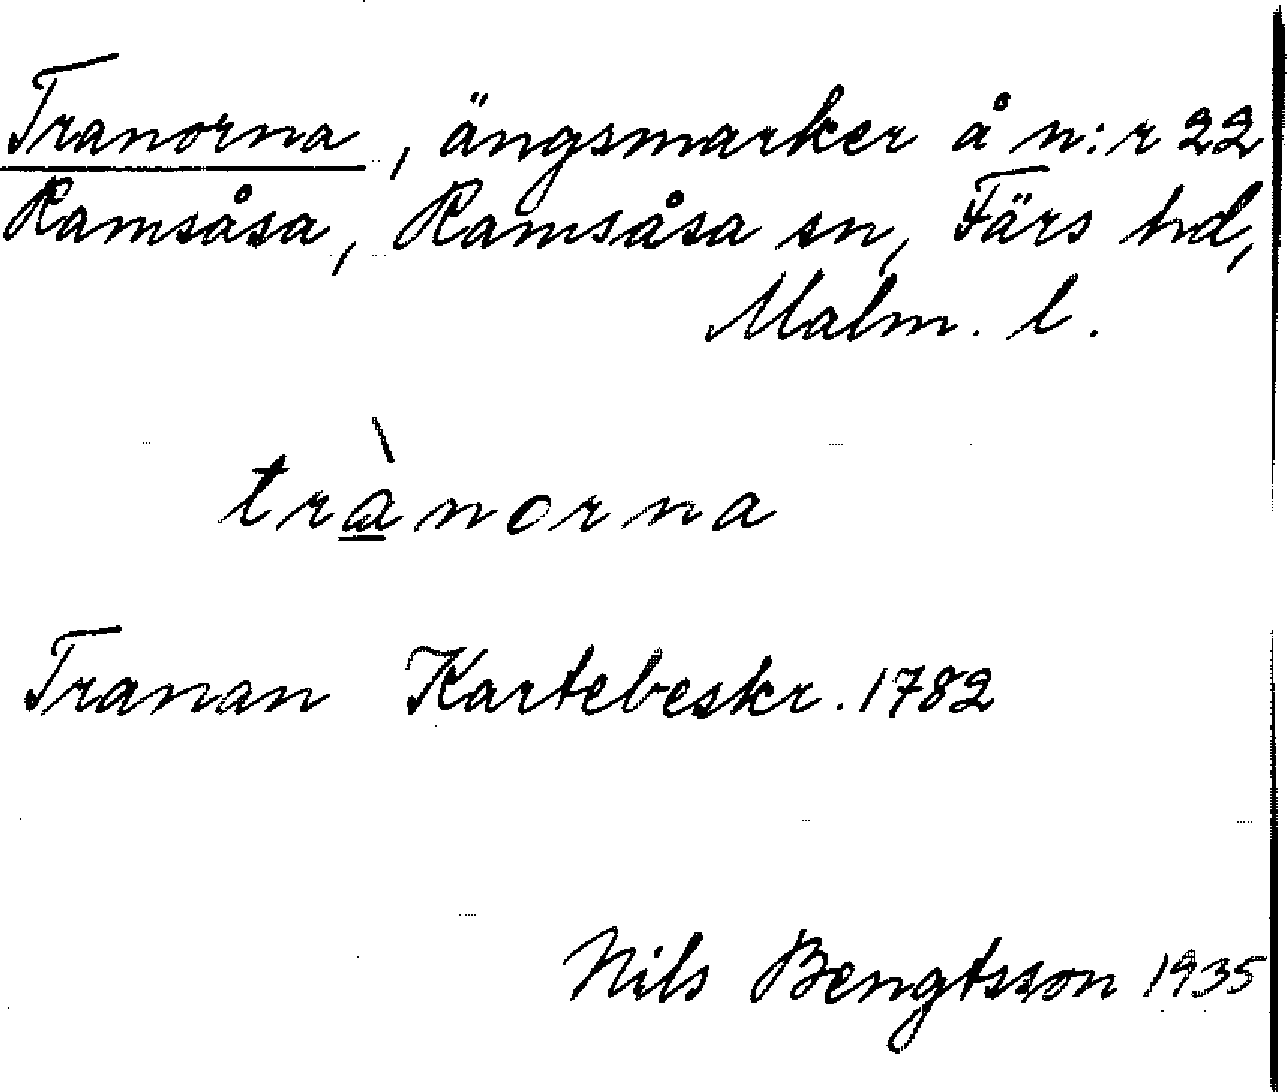 Tranorna, ängsmarker å n:r 22
Ramsåsa, Ramsåsa sn, Färs hd,
Malm. l.
trànorna
Tranan Kartebeskr. 1782
Nils Bengtsson 1935